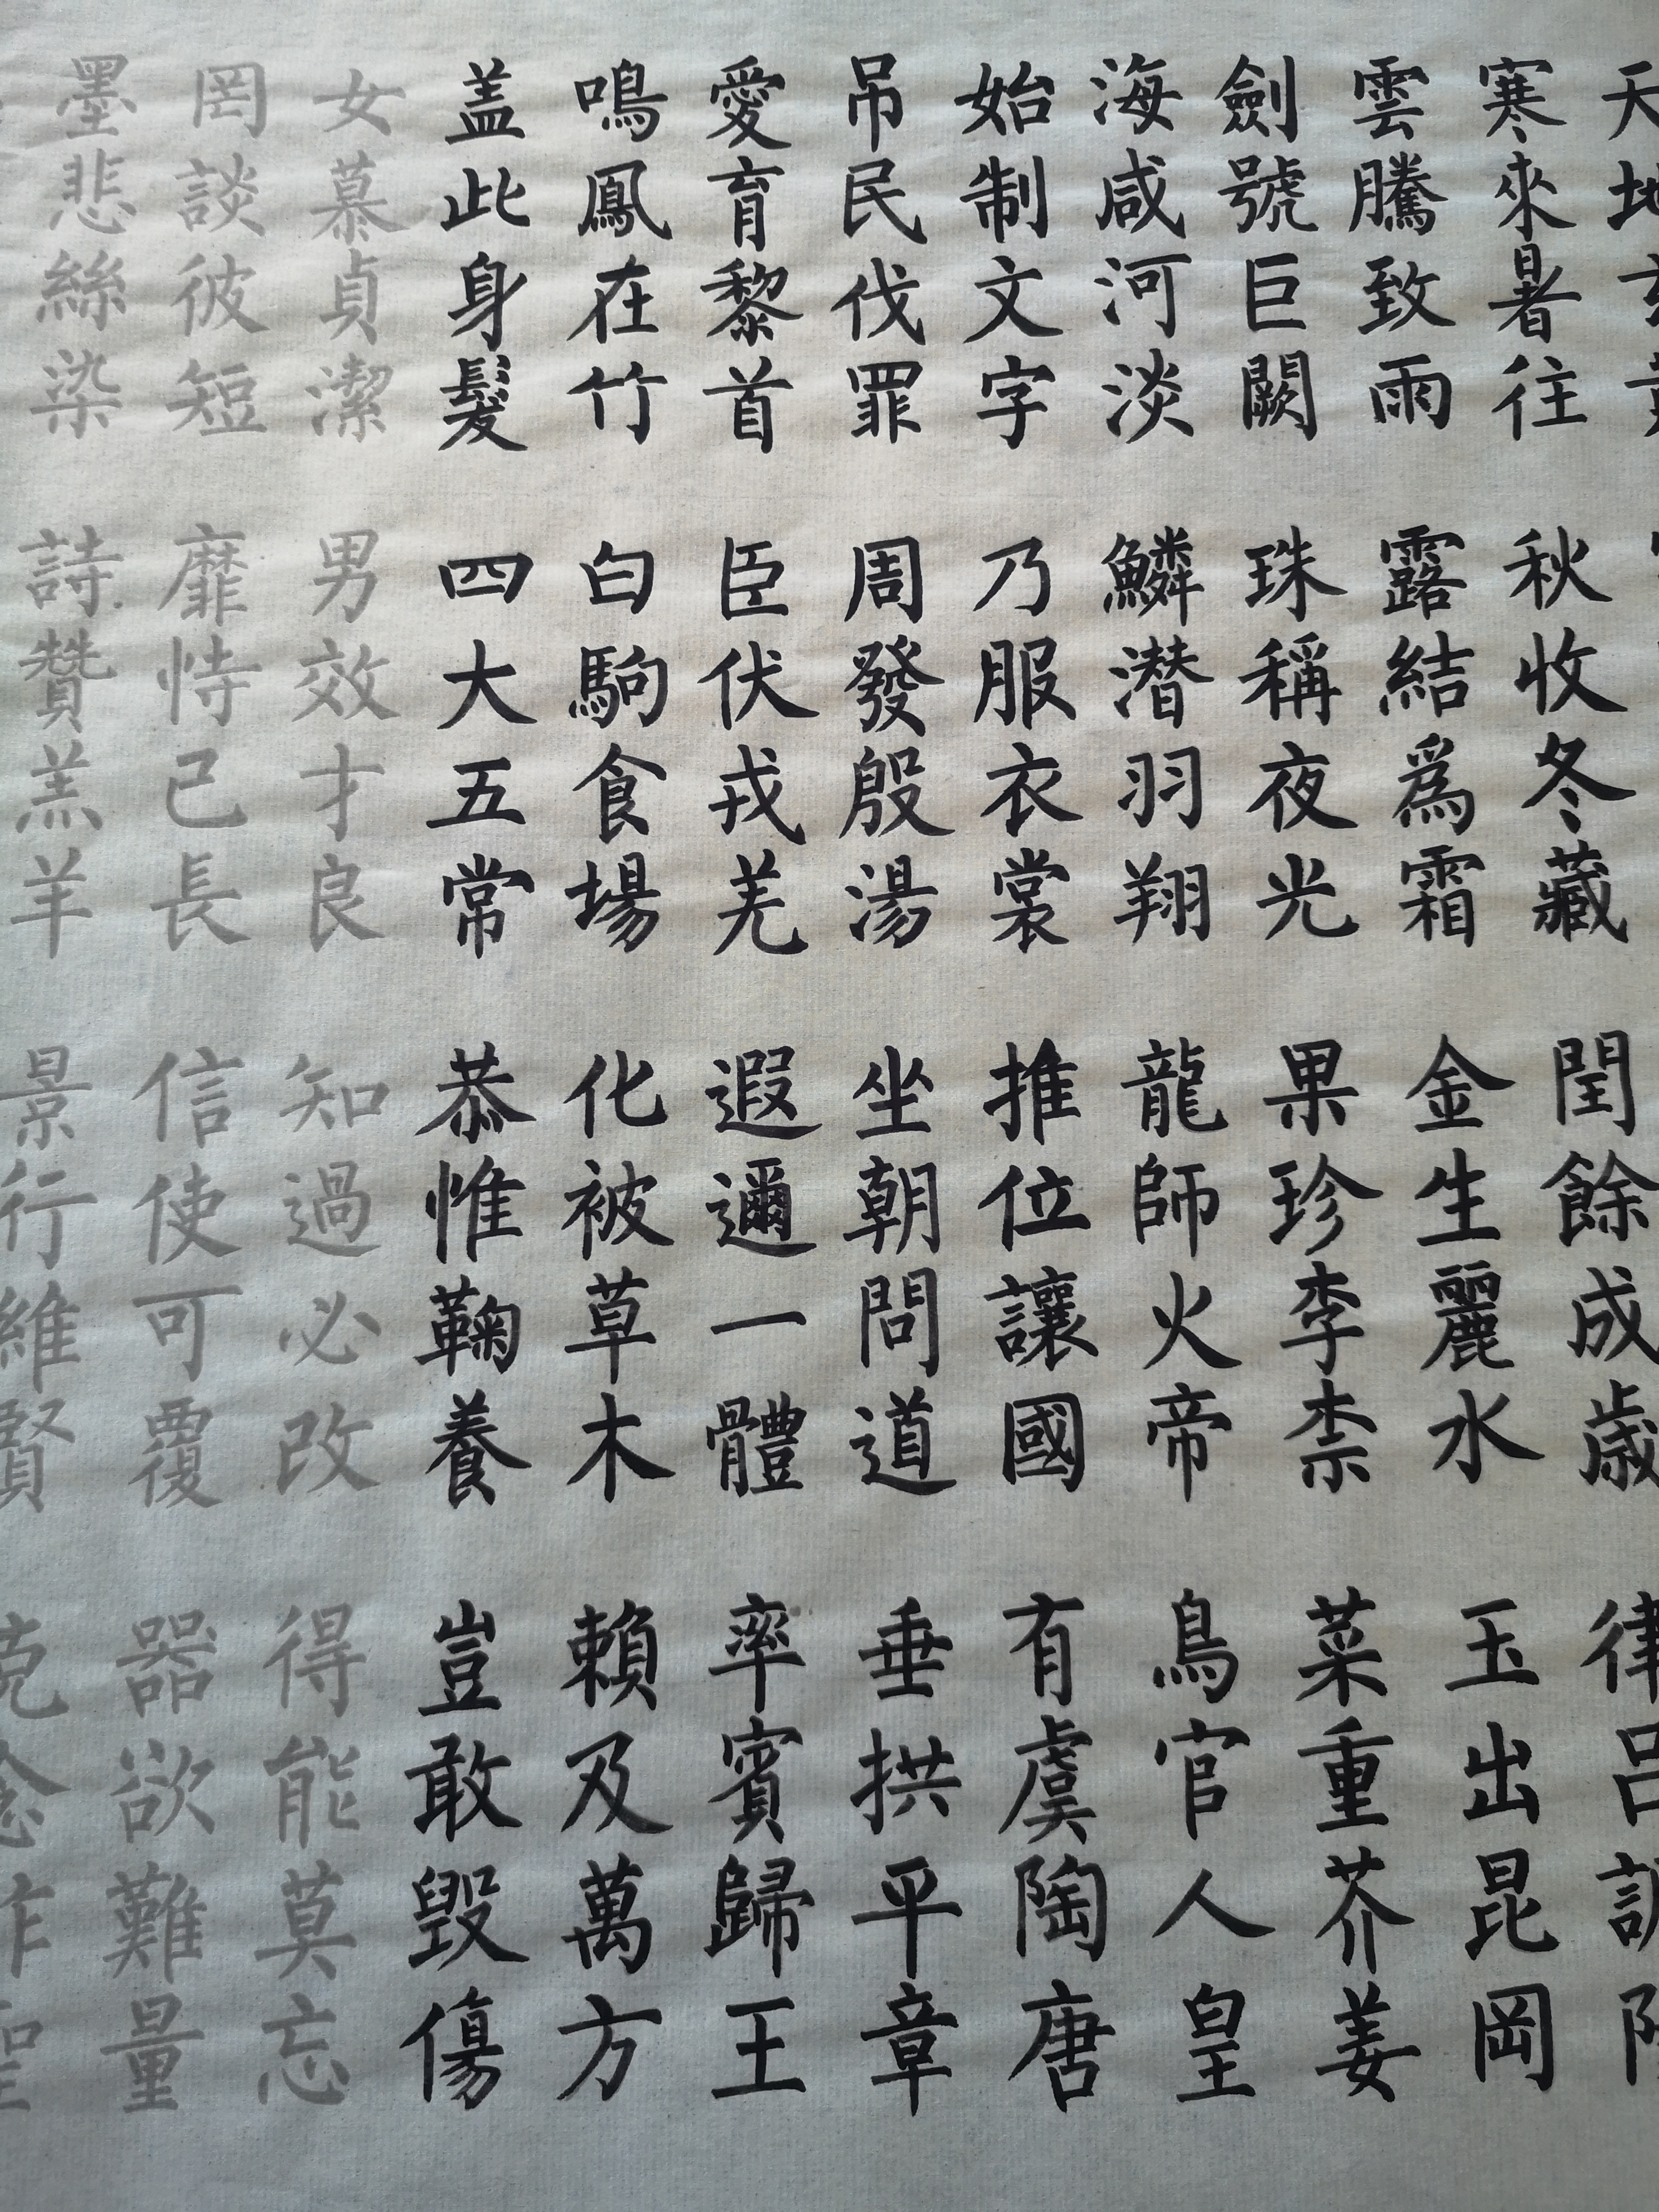 天地
寒來暑往 秋收冬藏 閏餘成歲 律呂調
雲騰致雨 露結爲霜 金生麗水 玉出昆岡
劍號巨闕 珠稱夜光 果珍李柰 菜重芥姜
海咸河淡 鱗潛羽翔 龍師火帝 鳥官人皇
始制文字 乃服衣裳 推位讓國 有虞陶唐
吊民伐罪 周發殷湯 坐朝問道 垂拱平章
愛育黎首 臣伏戎羌 遐邇一體 率賓歸王
鳴鳳在竹 白駒食場 化被草木 賴及萬方
盖此身髮 四大五常 恭惟鞠養 豈敢毀傷
女慕貞潔 男效才良 知過必改 得能莫忘
罔談彼短 靡恃己長 信使可覆 器欲難量
墨悲絲染 詩贊羔羊 景行維賢 克念作聖